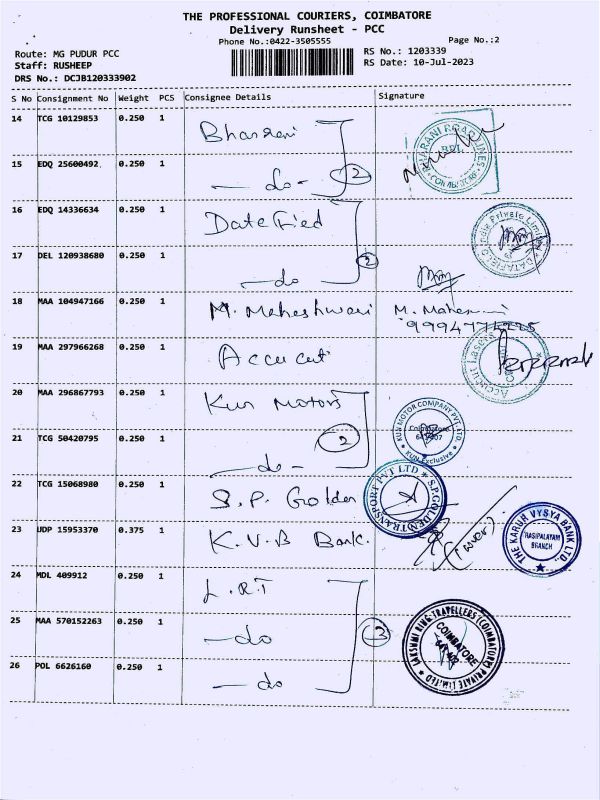 THE PROFESSIONAL COURIERS, COIMBATORE
Delivery Runsheet - PCC
Phone No.:0422-3505555
Page No.:2
Route: MG PUDUR PCC
RS No.: 1203339
Staff: RUSHEEP
RS Date: 10-Jul-2023
DRS No.: DCJB120333902
S No Consignment No Weight PCS Consignee Details Signature
14 TCG 10129853 0.250 1 Bharani
BHARANI ROADLINES
BRL
COIMBATORE
15 EDQ 25600492 0.250 1 - do - 2
16 EDQ 14336634 0.250 1 Datefied
DATAFIELD India Private Limited
17 DEL 120938680 0.250 1 - do 2
18 MAA 104947166 0.250 1 M. Maheshwari M.
19 MAA 297966268 0.250 1 Accu cut
Accurcut Lasers
20 MAA 296867793 0.250 1 Kun Motors
KUN MOTOR COMPANY PVT.LTD.
Coimbatore
KUN Exclusive
21 TCG 50420795 0.250 1 - do - 2
22 TCG 15068980 0.250 1 S.P. Golden
S.P.GOLDEN TRANSPORT PVT LTD
23 UDP 15953370 0.375 1 K.V.B Bank.
THE KARUR VYSYA BANK LTD.
BRANCH
24 MDL 409912 0.250 1 L.R.T
25 MAA 570152263 0.250 1 - do 3
LAKSHMI RING TRAVELLERS (COIMBATORE) PRIVATE LIMITED
COIMBATORE
26 POL 6626160 0.250 1 - do